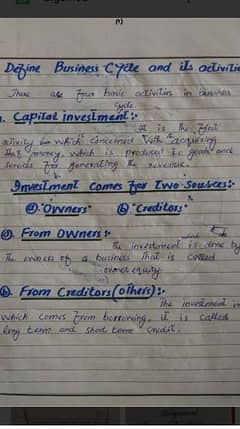 Define Business Cycle and its activitie
There are four basic activities in business
Cycle
1. Capital investment :-
It is the first
activity in which concerned with acquiring
that money, which is produced i.e goods and
services for generating the revenue.
Investment comes for two Sources:-
ⓐ. "Owners" ⓑ "Creditors"
ⓐ. From Owners :-
The investment is done by
The owners of a business that is called
owner equity
ⓑ. From Creditors (others) :-
The investment in
which comes from borrowing, it is called
long term and short term credit.